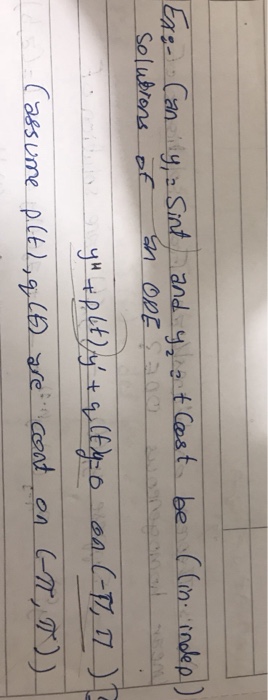 Ex:- Can y₁ = Sint and y₂ = t Cost be (lin. indep)
Solutions of an ODE
y" + p(t)y' + q(t)y=0 on (-π, π)?
(assume p(t), q(t) are cont on (-π, π))